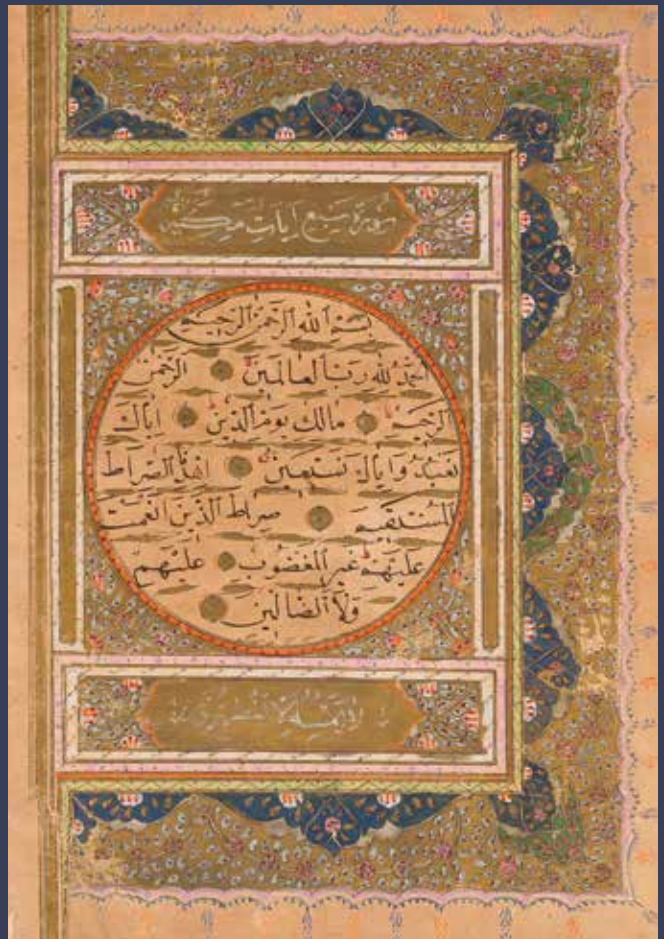 سورة سبع ايات مكية
بسم الله الرحمن الرحيم
الحمد لله رب العالمين الرحمن
الرحيم مالك يوم الدين اياك
نعبد واياك نستعين اهدنا الصراط
المستقيم صراط الذين انعمت
عليهم غير المغضوب عليهم
ولا الضالين
لا يمسه